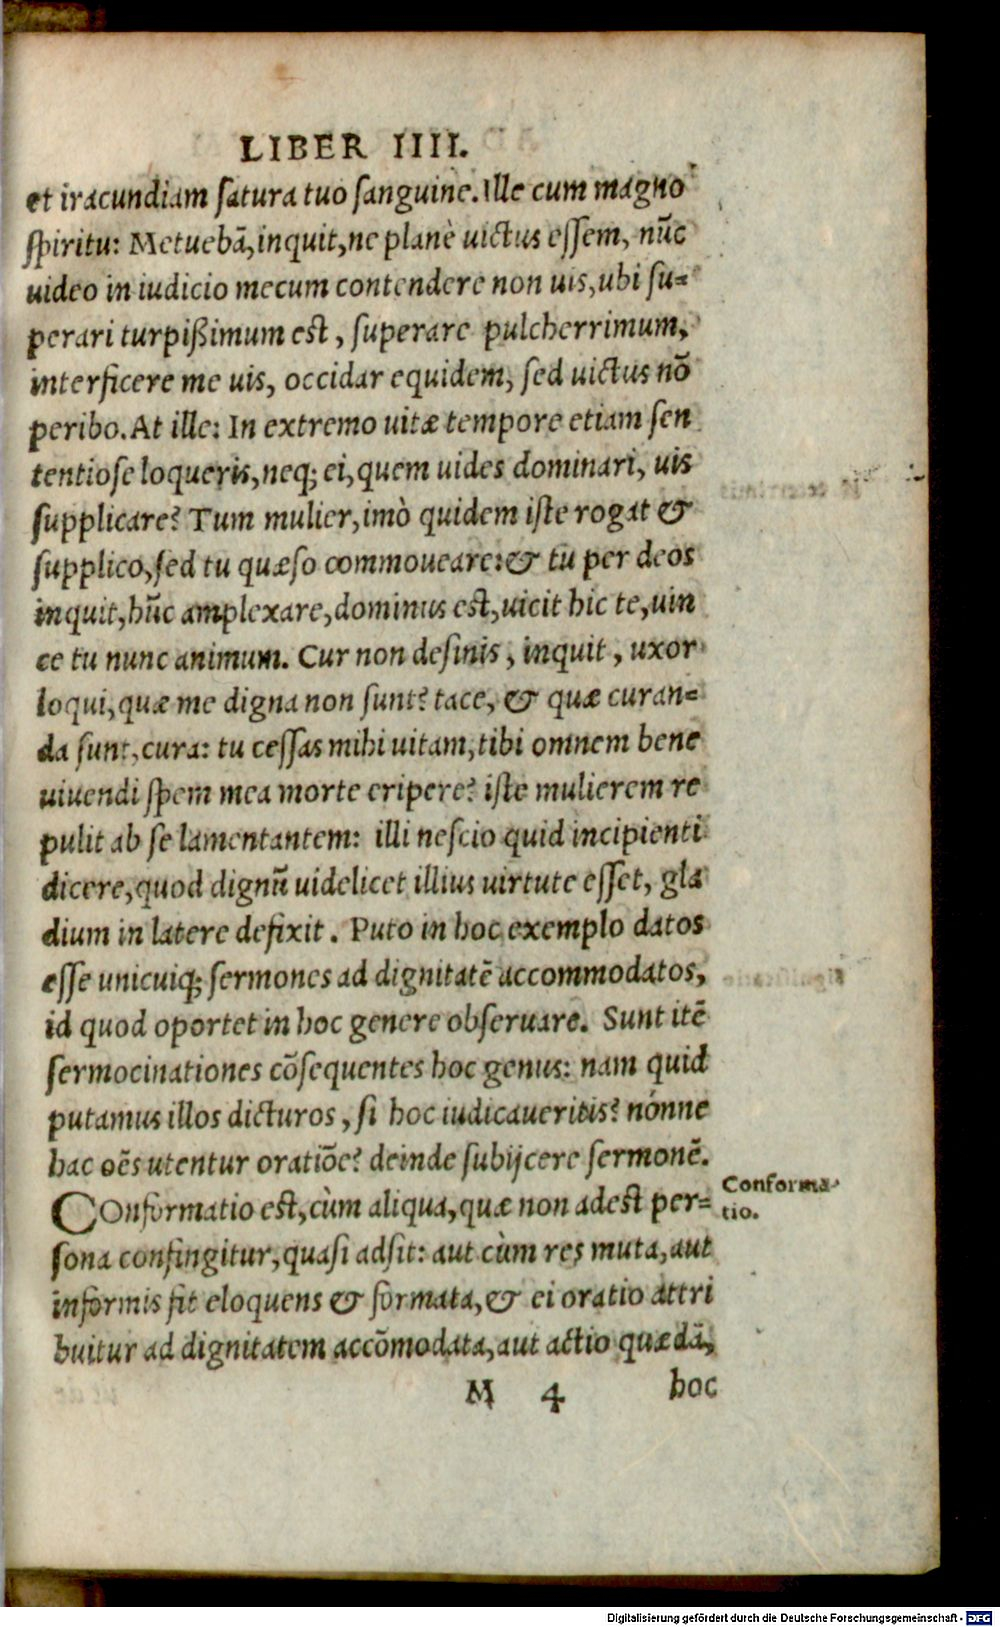 LIBER IIII.
et iracundiam satura tuo sanguine. Ille cum magno
spiritu: Metuebā, inquit, ne planè uictus essem, nūc
uideo in iudicio mecum contendere non uis, ubi su=
perari turpißimum est, superare pulcherrimum,
interficere me uis, occidar equidem, sed uictus nō
peribo. At ille: In extremo uitæ tempore etiam sen
tentiose loqueris, neq; ei, quem uides dominari, uis
supplicare? Tum mulier, imò quidem iste rogat &
supplico, sed tu quæso commoueare: & tu per deos
inquit, hūc amplexare, dominus est, uicit hic te, uin
ce tu nunc animum. Cur non desinis, inquit, uxor
loqui, quæ me digna non sunt? tace, & quæ curan=
da sunt, cura: tu cessas mihi uitam, tibi omnem bene
uiuendi spem mea morte eripere? iste mulierem re
pulit ab se lamentantem: illi nescio quid incipienti
dicere, quod dignū uidelicet illius uirtute esset, gla
dium in latere defixit. Puto in hoc exemplo datos
esse unicuiq; sermones ad dignitatē accommodatos,
id quod oportet in hoc genere obseruare. Sunt itē
sermocinationes cōsequentes hoc genus: nam quid
putamus illos dicturos, si hoc iudicaueritis? nónne
hac oēs utentur oratiōe? deinde subijcere sermonē.
COnformatio est, cùm aliqua, quæ non adest per=
sona confingitur, quasi adsit: aut cùm res muta, aut
informis fit eloquens & formata, & ei oratio attri
buitur ad dignitatem accōmodata, aut actio quædā,
M 4 hoc
Conforma-
tio.
Digitalisierung gefördert durch die Deutsche Forschungsgemeinschaft - DFG